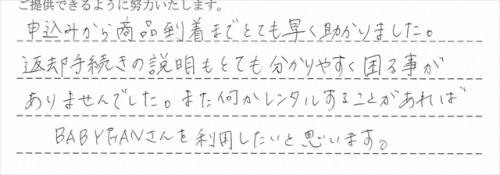 ご提供できるように努力いたします。
申込みから商品到着までとても早く助かりました。
返却手続きの説明もとても分かりやすく困る事が
ありませんでした。また何かレンタルすることがあれば
BABYRANさんを利用したいと思います。